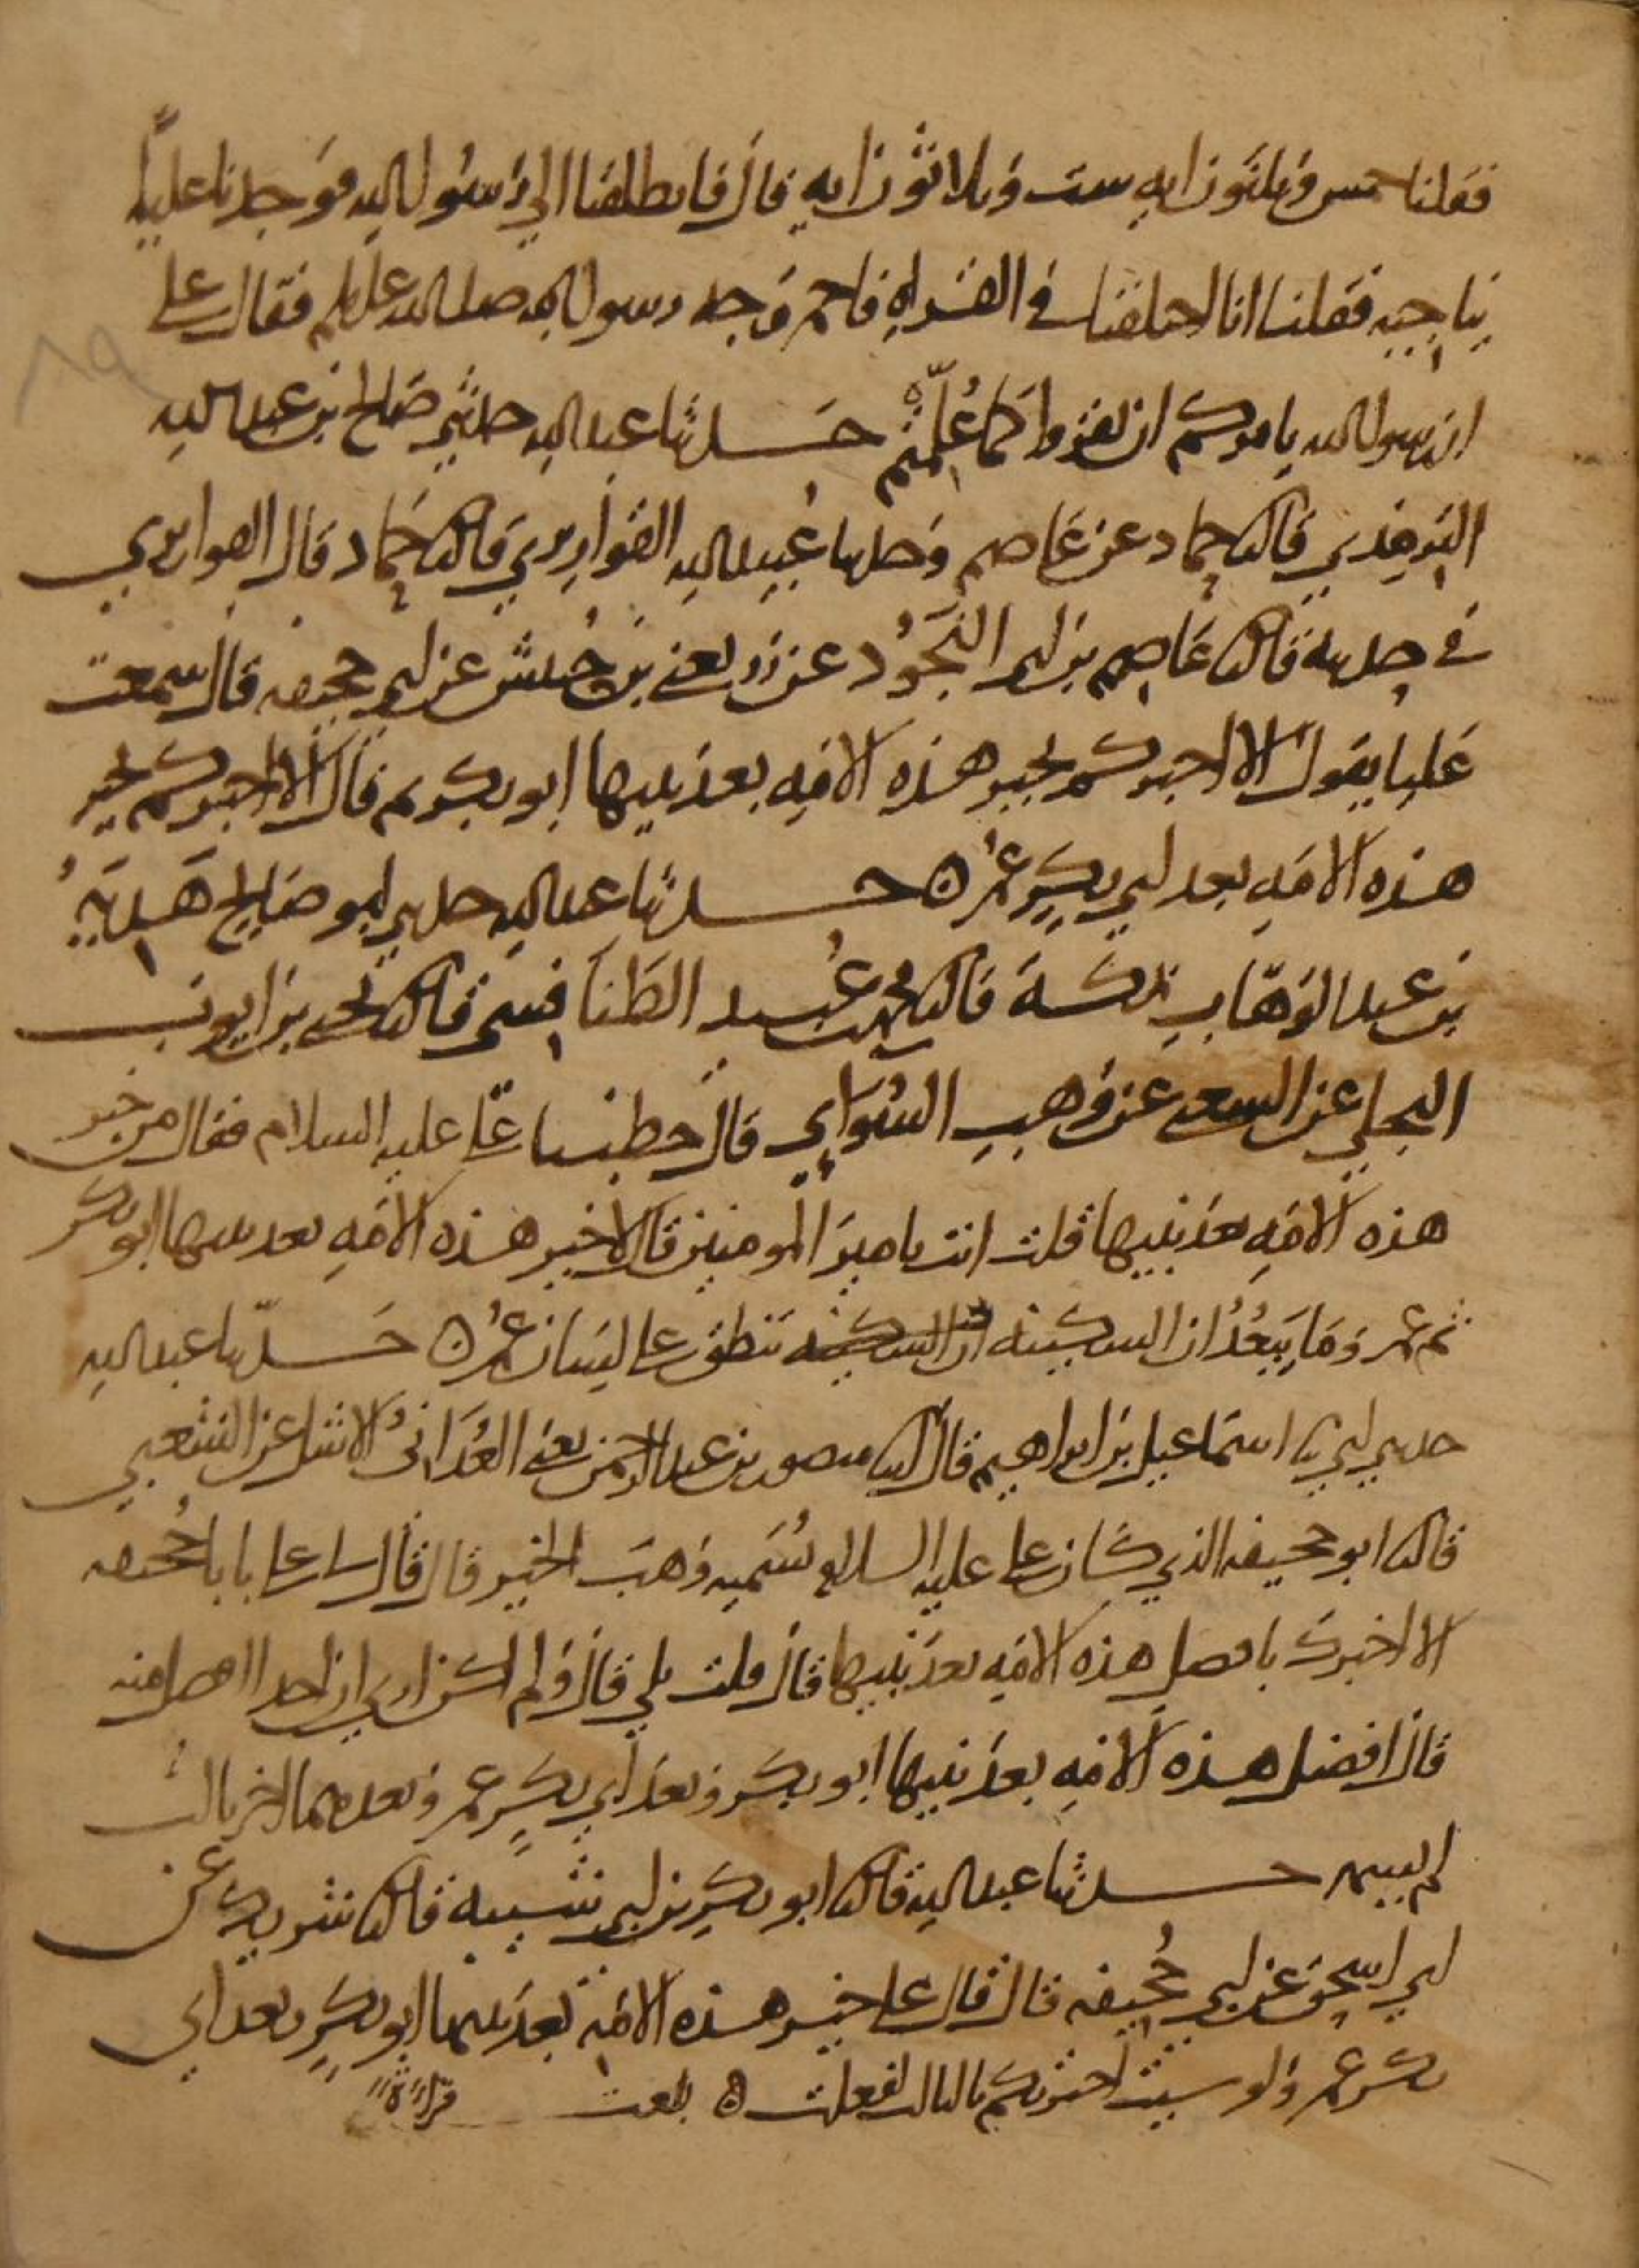 فقلنا خمس وثلثون ايه ست وثلاثون ايه قال فانطلقنا الي رسول الله فوجدنا عليا
يناجيه فقلنا انا اختلفنا في القراه فاحمر وجه رسول الله صلى الله عليه وسلم فقال علي
ان رسول الله يامركم ان تقروا كما علمتم حدثنا عبد الله حدثني صالح بن عبد الله
الترمذي قال نا حماد عن عاصم وحدثنا عبيد الله القواريري قال نا حماد قال القواريري
في حديثه قال نا عاصم بن ابي النجود عن زر يعني بن حبيش عن ابي جحيفه قال سمعت
عليا يقول الا اخبركم بخير هذه الامه بعد نبيها ابو بكر ثم قال الا اخبركم بخير
هذه الامه بعد ابي بكر عمر ه حدثنا عبد الله حدثني ابو صالح هدية
بن عبد الوهاب بمكة قال نا محمد بن عبيد الطنافسي قال نا يحيى بن ايوب
البجلي عن الشعبي عن وهب السوائي قال خطبنا علي عليه السلام فقال من خير
هذه الامه بعد نبيها قلت انت يامير المومنين قال لا خير هذه الامه بعد نبيها ابو بكر
ثم عمر وما يبعد ان السكينه ان السكينه تنطق على لسان عمر ه حدثنا عبد الله
حدثني ابي نا اسماعيل بن ابراهيم قال انا منصور بن عبد الرحمن يعني الغداني الاشل عن الشعبي
قال نا ابو جحيفه الذي كان علي عليه السلام يسميه وهب الخير قال قال لي علي يا با جحيفه
الا اخبرك بافضل هذه الامه بعد نبيها قال قلت بلي قال ولم اكن اري ان احدا افضل منه
قال افضل هذه الامه بعد نبيها ابو بكر وبعد ابي بكر عمر وبعدهما اخر ثالث
لم يسمه حدثنا عبد الله قال نا ابو بكر بن ابي شيبه قال نا شريك عن
ابي اسحق عن ابي جحيفه قال قال علي خير هذه الامه بعد نبيها ابو بكر وبعد ابي
بكر عمر ولو شيت اخبرتكم بالثالث لفعلت ه بلغت قراءة
٨٩